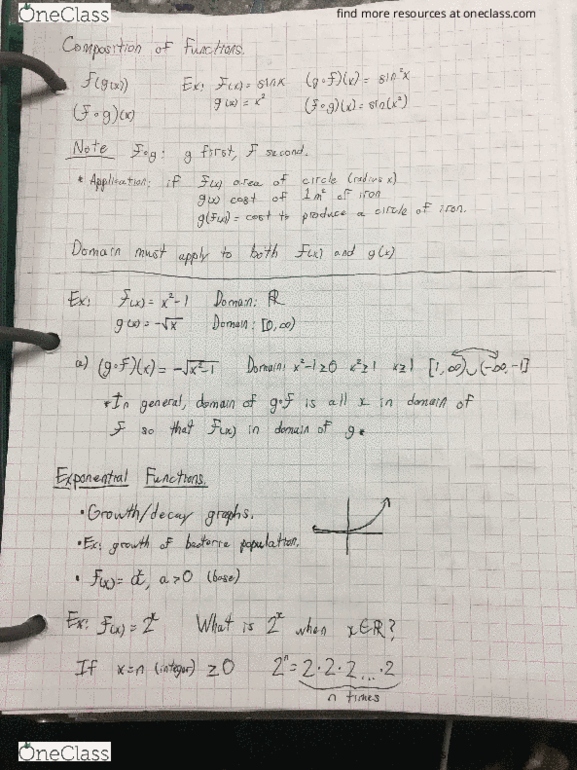 OneClass
find more resources at oneclass.com
Composition of Functions.
f(g(x)) Ex: F(x) = sinx (g∘f)(x) = sin²x
(f∘g)(x) g(x) = x² (f∘g)(x) = sin(x²)
Note f∘g: g first, f second.
* Application: if f(x) area of circle (radius x)
g(x) cost of 1m² of iron
g(f(x)) = cost to produce a circle of iron.
Domain must apply to both f(x) and g(x)
Ex: f(x) = x²-1 Domain: ℝ
g(x) = -√x Domain: [0,∞)
a) (g∘f)(x) = -√x²-1 Domain: x²-1≥0 x²≥1 x≥1 [1,∞)∪(-∞,-1]
*In general, domain of g∘f is all x in domain of
f so that f(x) in domain of g*
Exponential Functions.
• Growth/decay graphs.
• Ex: growth of bacteria population.
• f(x) = aˣ, a>0 (base)
Ex: f(x) = 2ˣ What is 2ˣ when x∈ℝ?
If x=n (integer) ≥0 2ⁿ = 2·2·2...·2
n times
OneClass